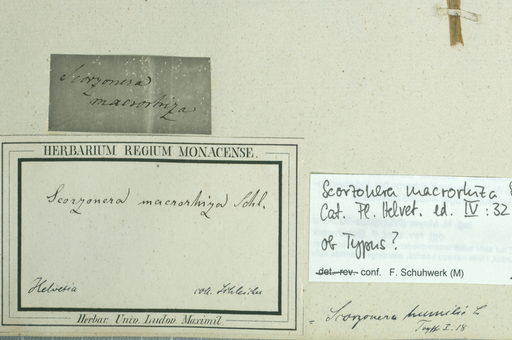 Scorzonera
macrorhiza
HERBARIUM REGIUM MONACENSE.
Scorzonera macrorhiza Schl.
Helvetia coll. Schleicher
Herbar. Univ. Ludov. Maximil.
Scorzonera macrorhiza
Cat. Pl. Helvet. ed. IV : 32
ob Typus?
det. rev. conf. F. Schuhwerk (M)
= Scorzonera humilis L.
I. 18